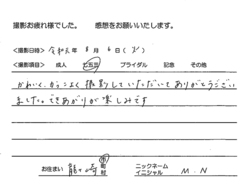 撮影お疲れ様でした。 感想をお願いいたします。
<撮影日時> 令和元年 8月 6日 (火)
<撮影項目> 成人 七五三 ブライダル 記念 その他
かわいく、かっこよく撮影していただいてありがとうござい
ました。できあがりが楽しみです
お住まい 龍ケ崎 市 町 村 ニックネーム イニシャル M.N